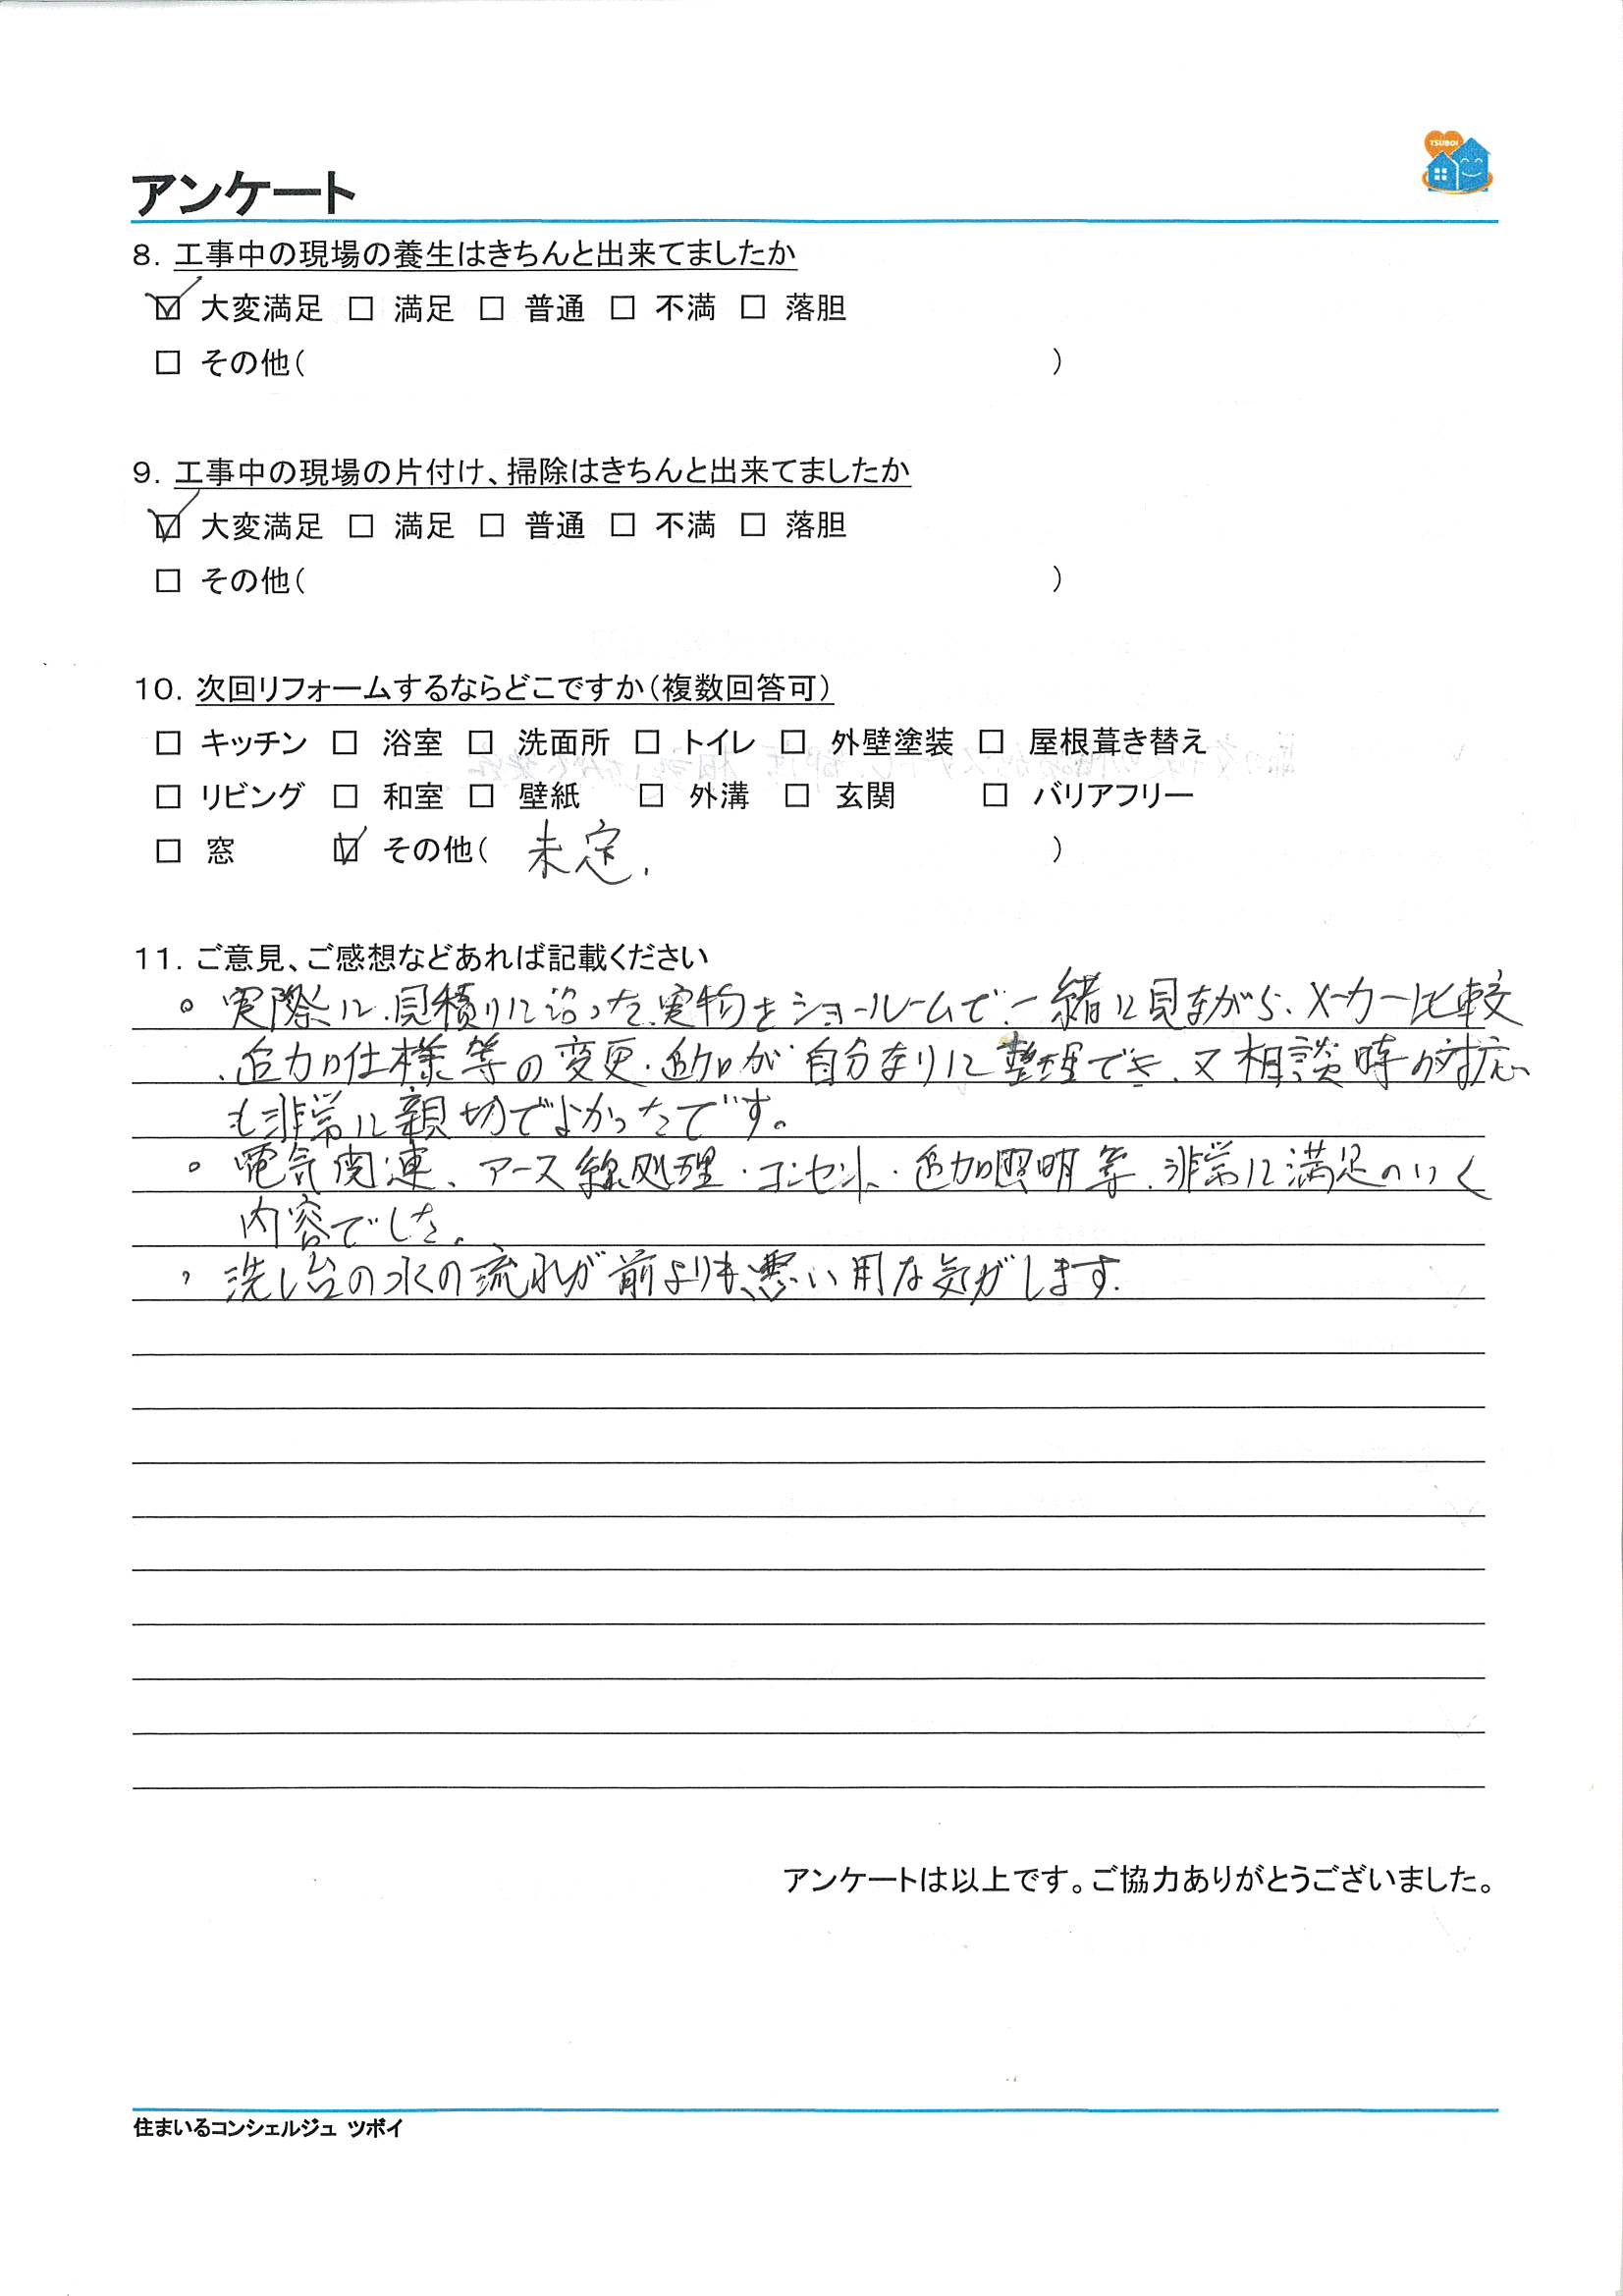 TSUBOI
アンケート
8. 工事中の現場の養生はきちんと出来てましたか
☑ 大変満足 □ 満足 □ 普通 □ 不満 □ 落胆
□ その他( )
9. 工事中の現場の片付け、掃除はきちんと出来てましたか
☑ 大変満足 □ 満足 □ 普通 □ 不満 □ 落胆
□ その他( )
10. 次回リフォームするならどこですか(複数回答可)
□ キッチン □ 浴室 □ 洗面所 □ トイレ □ 外壁塗装 □ 屋根葺き替え
□ リビング □ 和室 □ 壁紙 □ 外溝 □ 玄関 □ バリアフリー
□ 窓 ☑ その他( 未定. )
11. ご意見、ご感想などあれば記載ください
○ 実際に、見積りに沿った、実物をショールームで、一緒に見ながら、メーカー比較
、追加仕様等の変更・追加が自分なりに整理でき、又相談時の対応
も非常に親切でよかったです。
○ 電気関連、アース線処理・コンセント・追加照明等、非常に満足のいく
内容でした。
、洗し台の水の流れが前よりも悪い用な気がします.
アンケートは以上です。ご協力ありがとうございました。
住まいるコンシェルジュ ツボイ